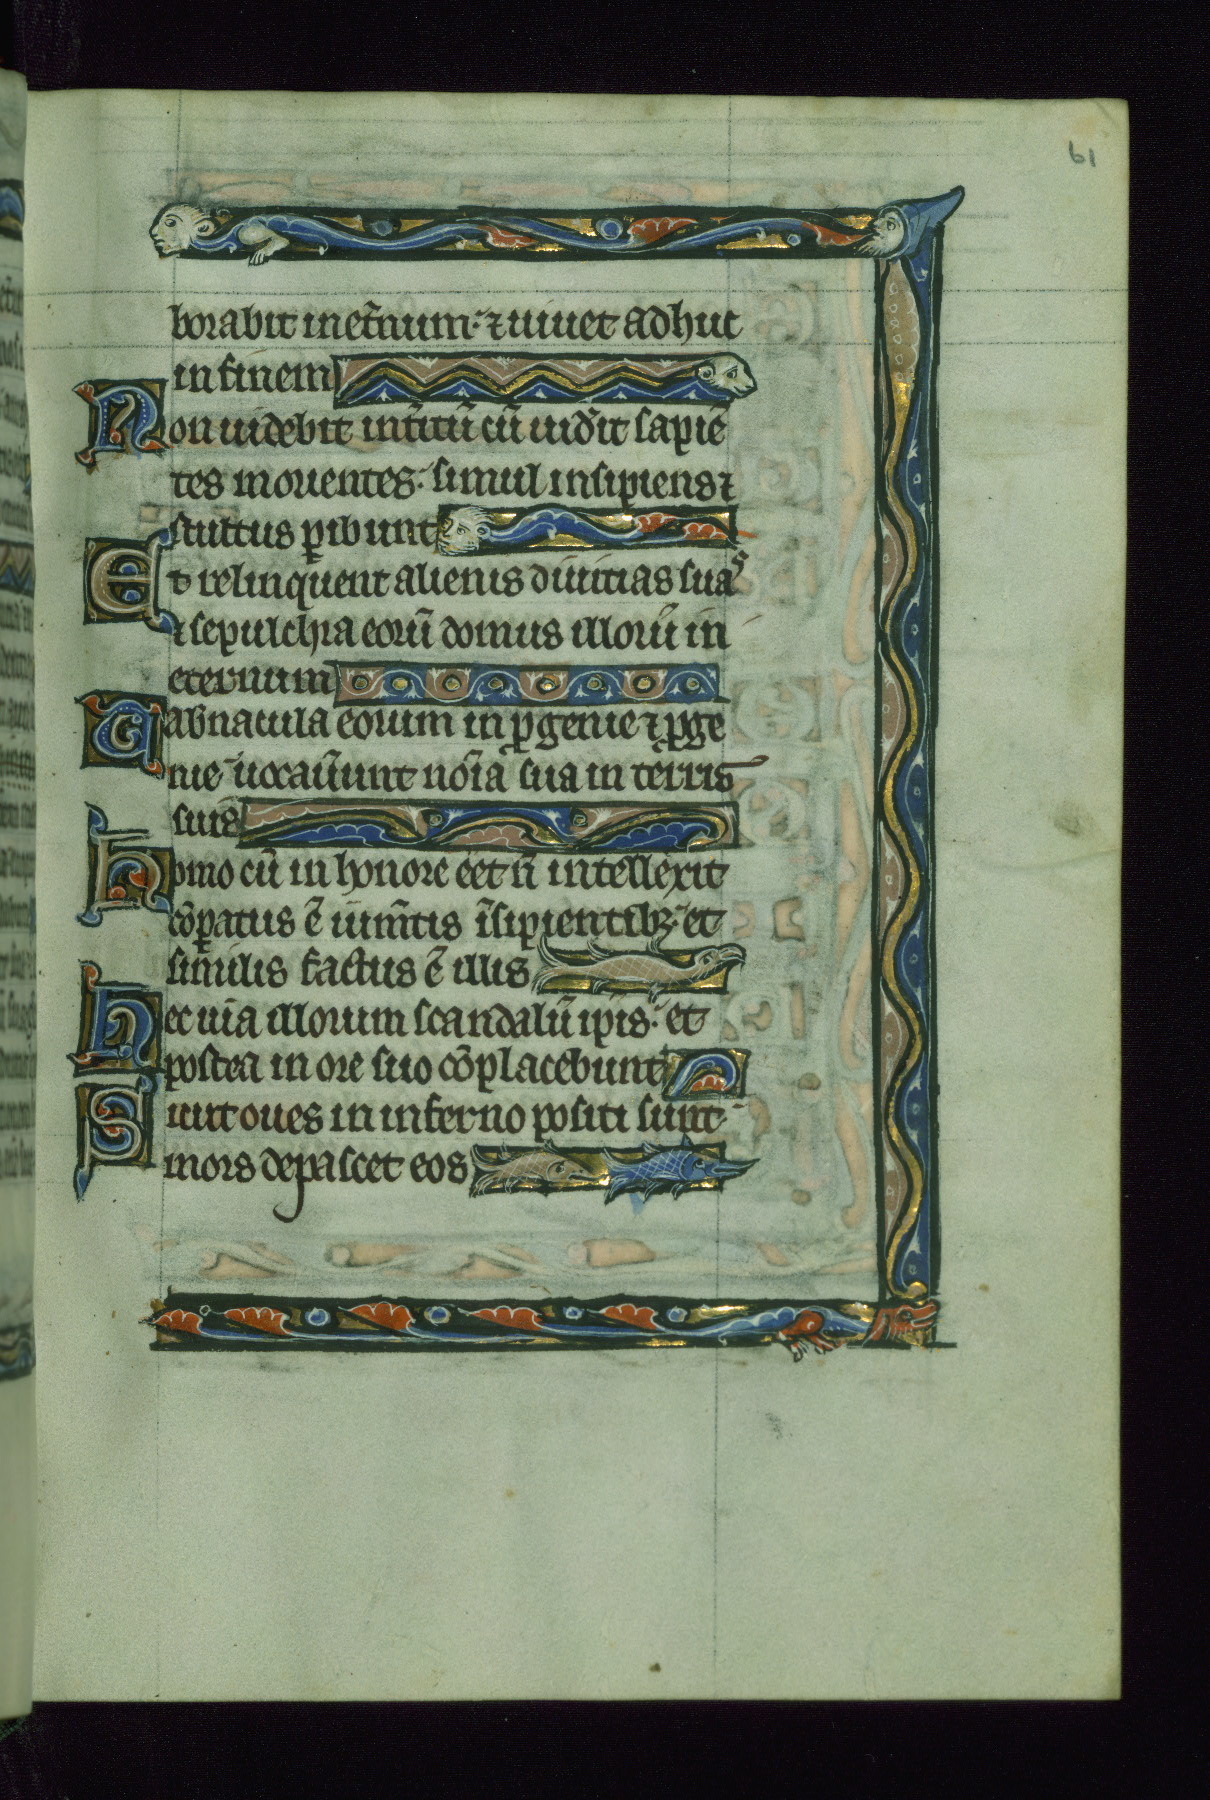 61
borabit in et̄num· ⁊ uiuet adhuc
in finem
Non uidebit int̄itū cū uid̄it sapiē
tes morientes· simul insipiens ⁊
stultus ꝑibunt
Et relinquent alienis diuitias suas
⁊ sepulchra eorū domus illorū in
eternum
Tab̄nacula eorum in ꝓgenie ⁊ ꝓge
nie· uocau̅unt noīa sua in terris
suis
homo cū in honore eēt n̄ intellexit
cōparatus ē ium̄tis īsipientibꝫ· et
similis factus ē illis
hec uia illorum scandalū ip̄is· et
postea in ore suo cōplacebunt
Sicut oues in inferno positi sunt·
mors depascet eos